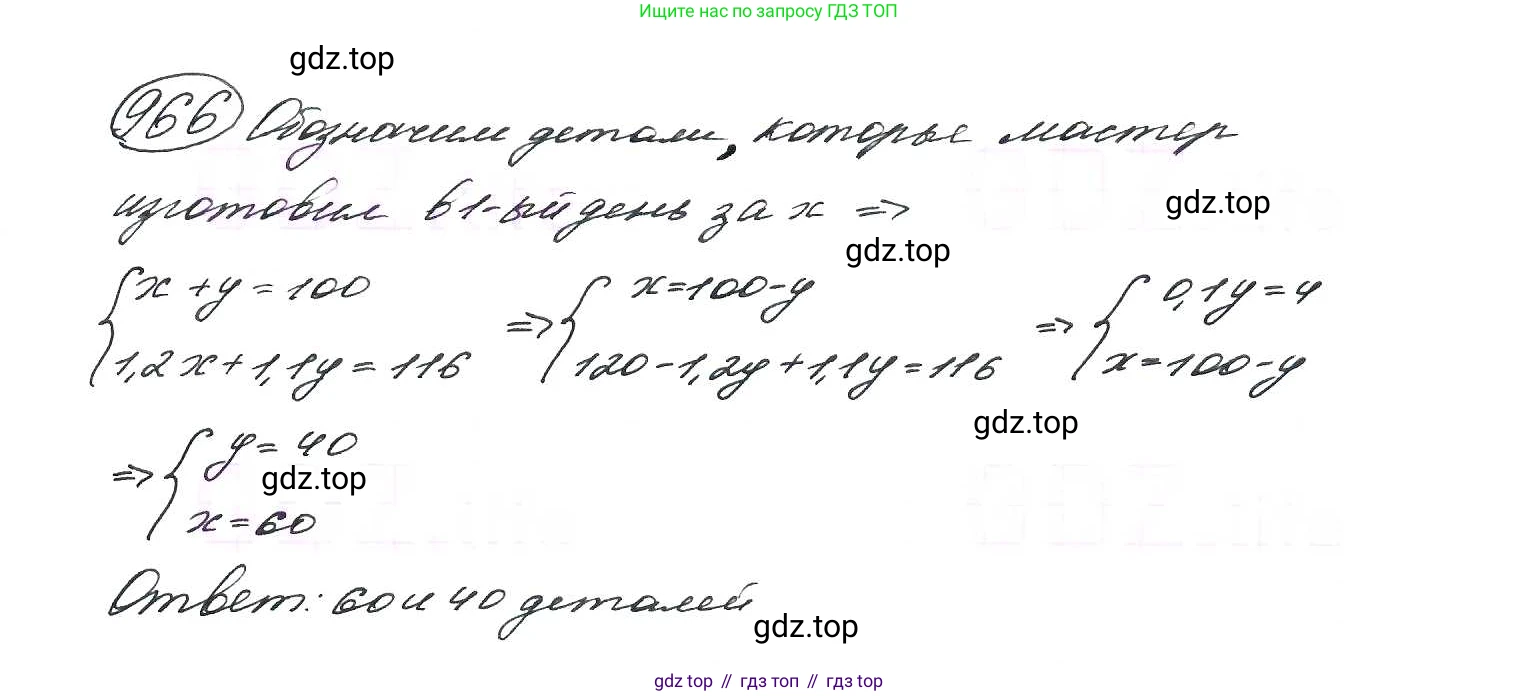 Ищите нас по запросу ГДЗ ТОП
gdz.top
966 Обозначим детали, которые мастер
изготовил в 1-ый день за x =>
gdz.top
gdz.top
{ x + y = 100 => { x = 100 - y => { 0,1y = 4
1,2x + 1,1y = 116 120 - 1,2y + 1,1y = 116 x = 100 - y
gdz.top
=> { y = 40
gdz.top
x = 60
Ответ: 60 и 40 деталей
gdz.top
gdz top // гдз топ // гдз top